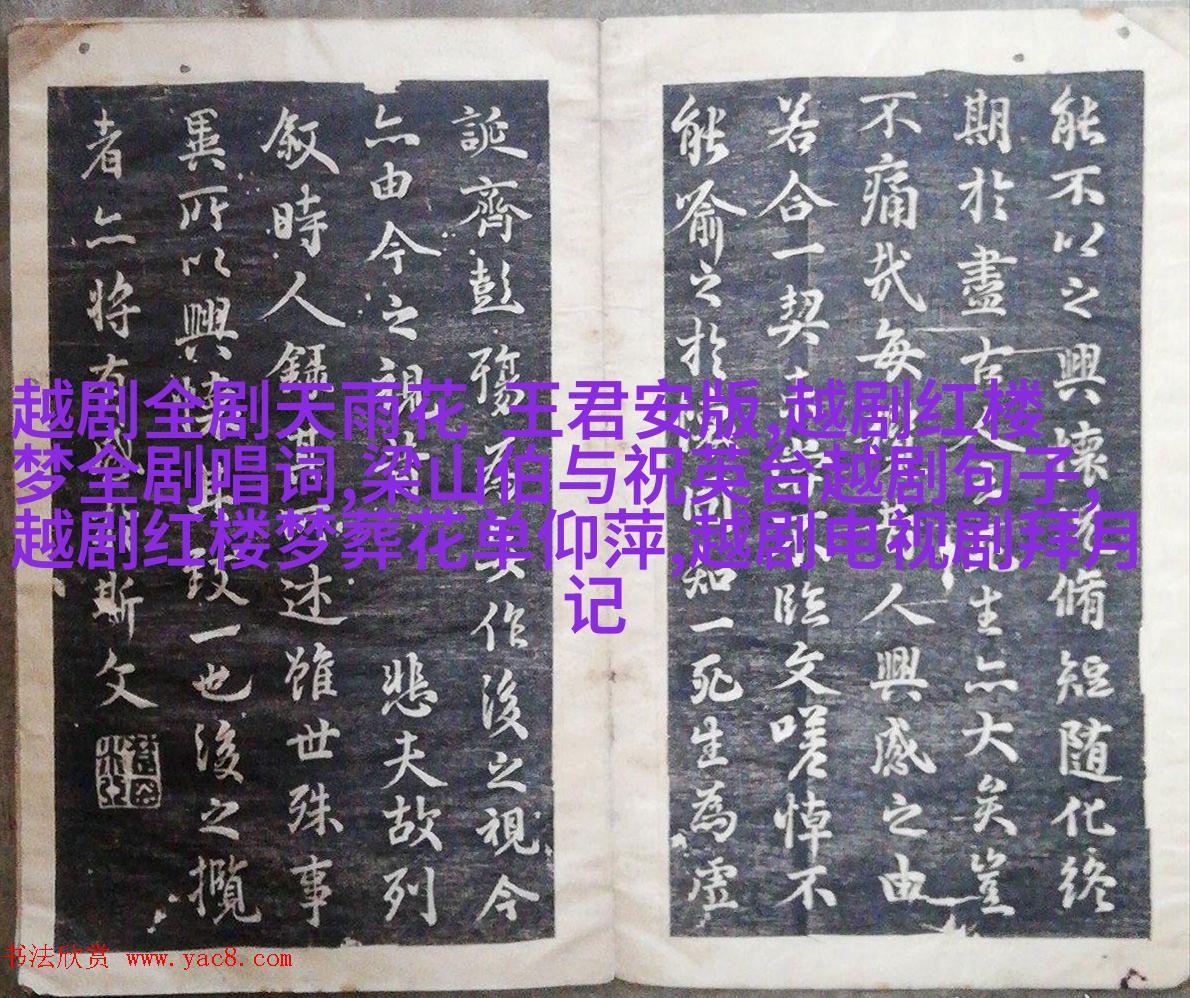 能不以之興懷況脩短随化終
期於盡古人云死生亦大矣豈
不痛哉每攬昔人興感之由
若合一契未嘗不臨文嗟悼不
能喻之於懷固知一死生為虛
誕齊彭殤為妄作後之視今
亦由今之視昔悲夫故列
敘時人錄其所述雖世殊事
異所以興懷其致一也後之攬
者亦将有感於斯文
越剧全剧天雨花 王君安版,越剧红楼
梦全剧唱词,梁山伯与祝英台越剧句子,
越剧红楼梦葬花单仰萍,越剧电视剧拜月
记
书法欣赏 www.yac8.com